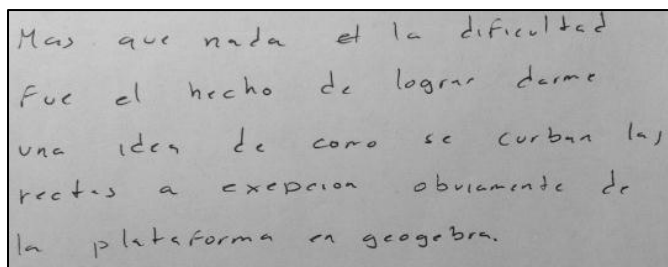 Mas que nada el la dificultad
Fue el hecho de lograr darme
una idea de como se curban las
rectas a exepcion obviamente de
la plataforma en geogebra.